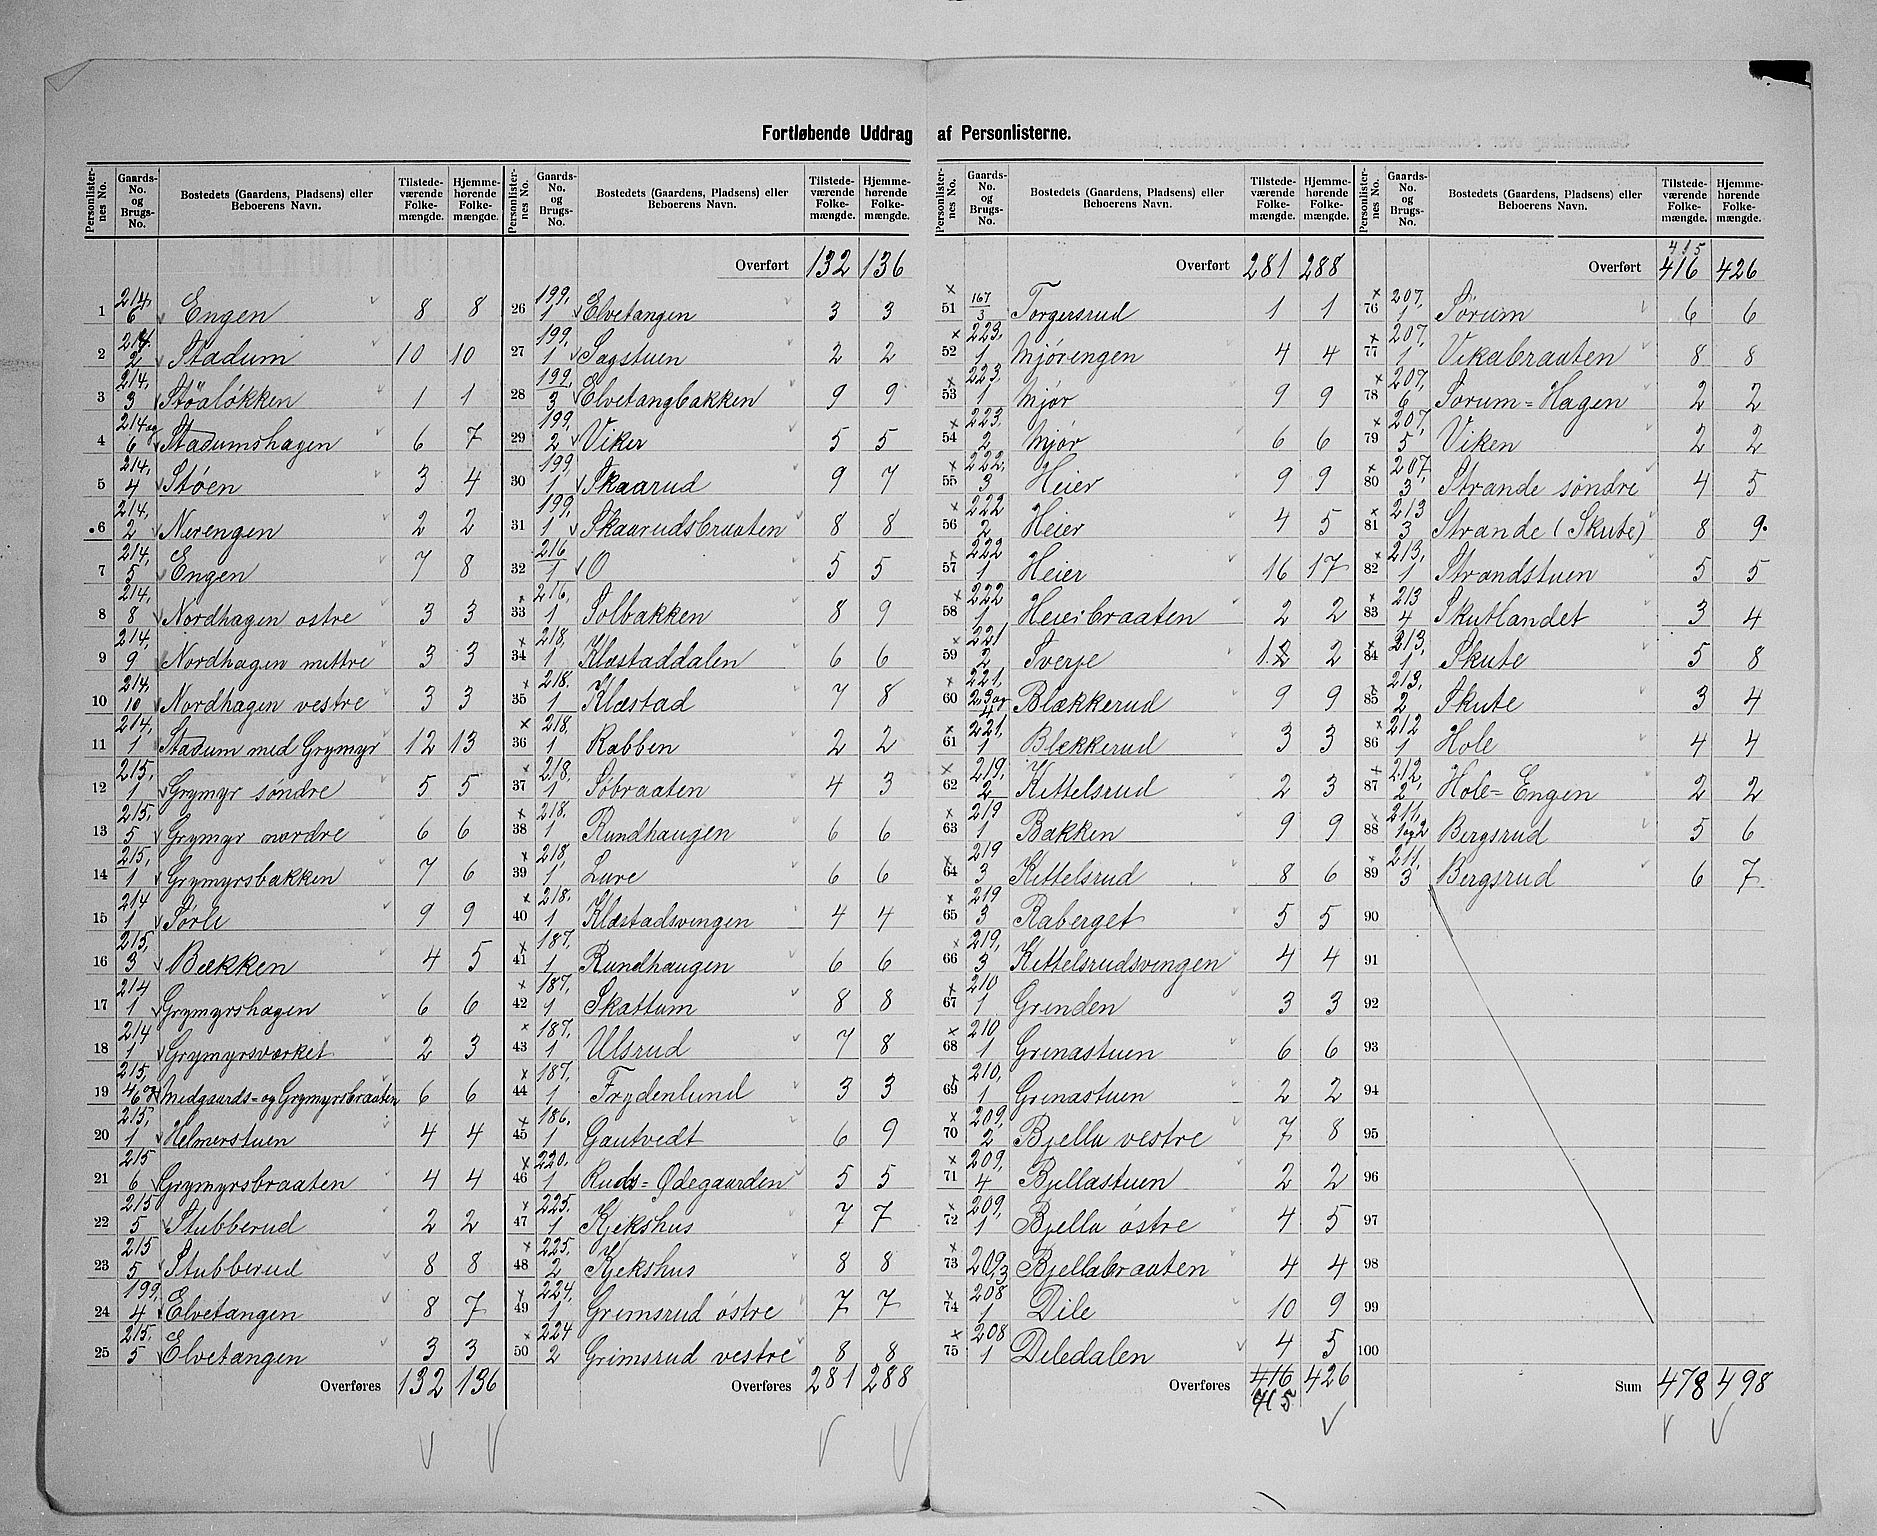 Fortløbende Uddrag af Personlisterne.
Personlister-nes No. Gaards-No. og Brugs-No. Bostedets (Gaardens, Pladsens) eller Beboerens Navn. Tilstede-værende Folke-mængde. Hjemme-hørende Folke-mængde.
1 214, 6 Engen 8 8
2 214. 2 Stadum 10 10
3 214, 3 Stöaløkken 1 1
4 214 og 6 Stadumshagen 6 7
5 214, 4 Støen 3 4
6 214, 2 Nerengen 2 2
7 214, 5 Engen 7 8
8 214, 8 Nordhagen østre 3 3
9 214, 9 Nordhagen mittre 3 3
10 214, 10 Nordhagen vestre 3 3
11 214, 1 Stadum med Grymyr 12 13
12 215, 1 Grymyr søndre 5 5
13 215, 5 Grymyr nordre 6 6
14 215, 1 Grymyrsbakken 7 6
15 214 1 Sørli 9 9
16 215, 3 Bækken 4 5
17 214 1 Grymyrshagen 6 6
18 214 1 Grymyrsværket 2 3
19 215, 4 og 6 Midgaards= og Grymyrsbraaten 6 6
20 215, 1 Helmerstuen 4 4
21 215 6 Grymyrsbraaten 4 4
22 215 5 Stubberud 2 2
23 215 5 Stubberud 8 8
24 199, 4 Elvetangen 8 7
25 215, 5 Elvetangen 3 3
Overføres 132 136
Personlister-nes No. Gaards-No. og Brugs-No. Bostedets (Gaardens, Pladsens) eller Beboerens Navn. Tilstede-værende Folke-mængde. Hjemme-hørende Folke-mængde.
Overført 132 136
26 199, 1 Elvetangen 3 3
27 199, 1 Sagstuen 2 2
28 199, 3 Elvetangbakken 9 9
29 199, 2 Viker 5 5
30 199, 1 Skaarud 9 7
31 199, 1 Skaarudsbraaten 8 8
32 216 1 O 5 5
33 216, 1 Solbakken 8 9
34 218, 1 Klæstaddalen 6 6
35 218. 1 Klæstad 7 8
36 218, 1 Rabben 2 2
37 218, 1 Søbraaten 4 3
38 218, 1 Rundhaugen 6 6
39 218, 1 Lure 6 6
40 218. 1 Klæstadsvingen 4 4
41 187, 1 Rundhaugen 6 6
42 187, 1 Skattum 8 8
43 187, 1 Ulsrud 7 8
44 187, 1 Frydenlund 3 3
45 186, 1 Gautvedt 6 9
46 220. 1 Ruds= Ødegaarden 5 5
47 225. 1 Kjekshus 7 7
48 225. 2 Kjekshus 8 8
49 224, 1 Grimsrud østre 7 7
50 224 2 Grimsrud vestre 8 8
Overføres 281 288
Personlister-nes No. Gaards-No. og Brugs-No. Bostedets (Gaardens, Pladsens) eller Beboerens Navn. Tilstede-værende Folke-mængde. Hjemme-hørende Folke-mængde.
Overført 281 288
51 167 3 Torgersrud 1 1
52 223. 1 Mjørengen 4 4
53 223. 1 Mjør 9 9
54 223. 2 Mjør 6 6
55 222, 3 Heier 9 9
56 222 2 Heier 4 5
57 222 1 Heier 16 17
58 222 1 Heieibraaten 2 2
59 221 2 Sverje 1. 2
60 221, 2 3 og 4 Blækkerud 9 9
61 221, 1 Blekkerud 3 3
62 219, 2 Kittelsrud 2 3
63 219 1 Bakken 9 9
64 219 3 Kittelsrud 8 6
65 219 3 Raberget 5 5
66 219, 3 Kittelsrudsvingen 4 4
67 210 1 Grinden 3 3
68 210 1 Grinastuen 6 6
69 210, 1 Grinastuen 2 2
70 209, 2 Bjella vestre 7 8
71 209, 4 Bjellastuen 2 2
72 209, 1 Bjella østre 4 5
73 209, 3 Bjellabraaten 4 4
74 208 1 Dile 10 9
75 208 1 Diledalen 4 5
Overføres 416 426
415
Personlister-nes No. Gaards-No. og Brugs-No. Bostedets (Gaardens, Pladsens) eller Beboerens Navn. Tilstede-værende Folke-mængde. Hjemme-hørende Folke-mængde.
415
Overført 416 426
76 207, 1 Sørum 6 6
77 207, 1 Vikabraaten 8 8
78 207, 6 Sørum=Hagen 2 2
79 207, 5 Viken 2 2
80 207, 3 Strande søndre 4 5
81 213 3 Strande (Skute) 8 9
82 213, 1 Strandstuen 5 5
83 213 4 Skutlandet 3 4
84 213, 1 Skute 5 8
85 213, 2 Skute 3 4
86 212 1 Hole 4 4
87 212, 2 Hole=Engen 2 2
88 211, 1 og 2 Bergsrud 5 6
89 211, 3 Bergsrud 6 7
90
91
92
93
94
95
96
97
98
99
100
Sum 478 498